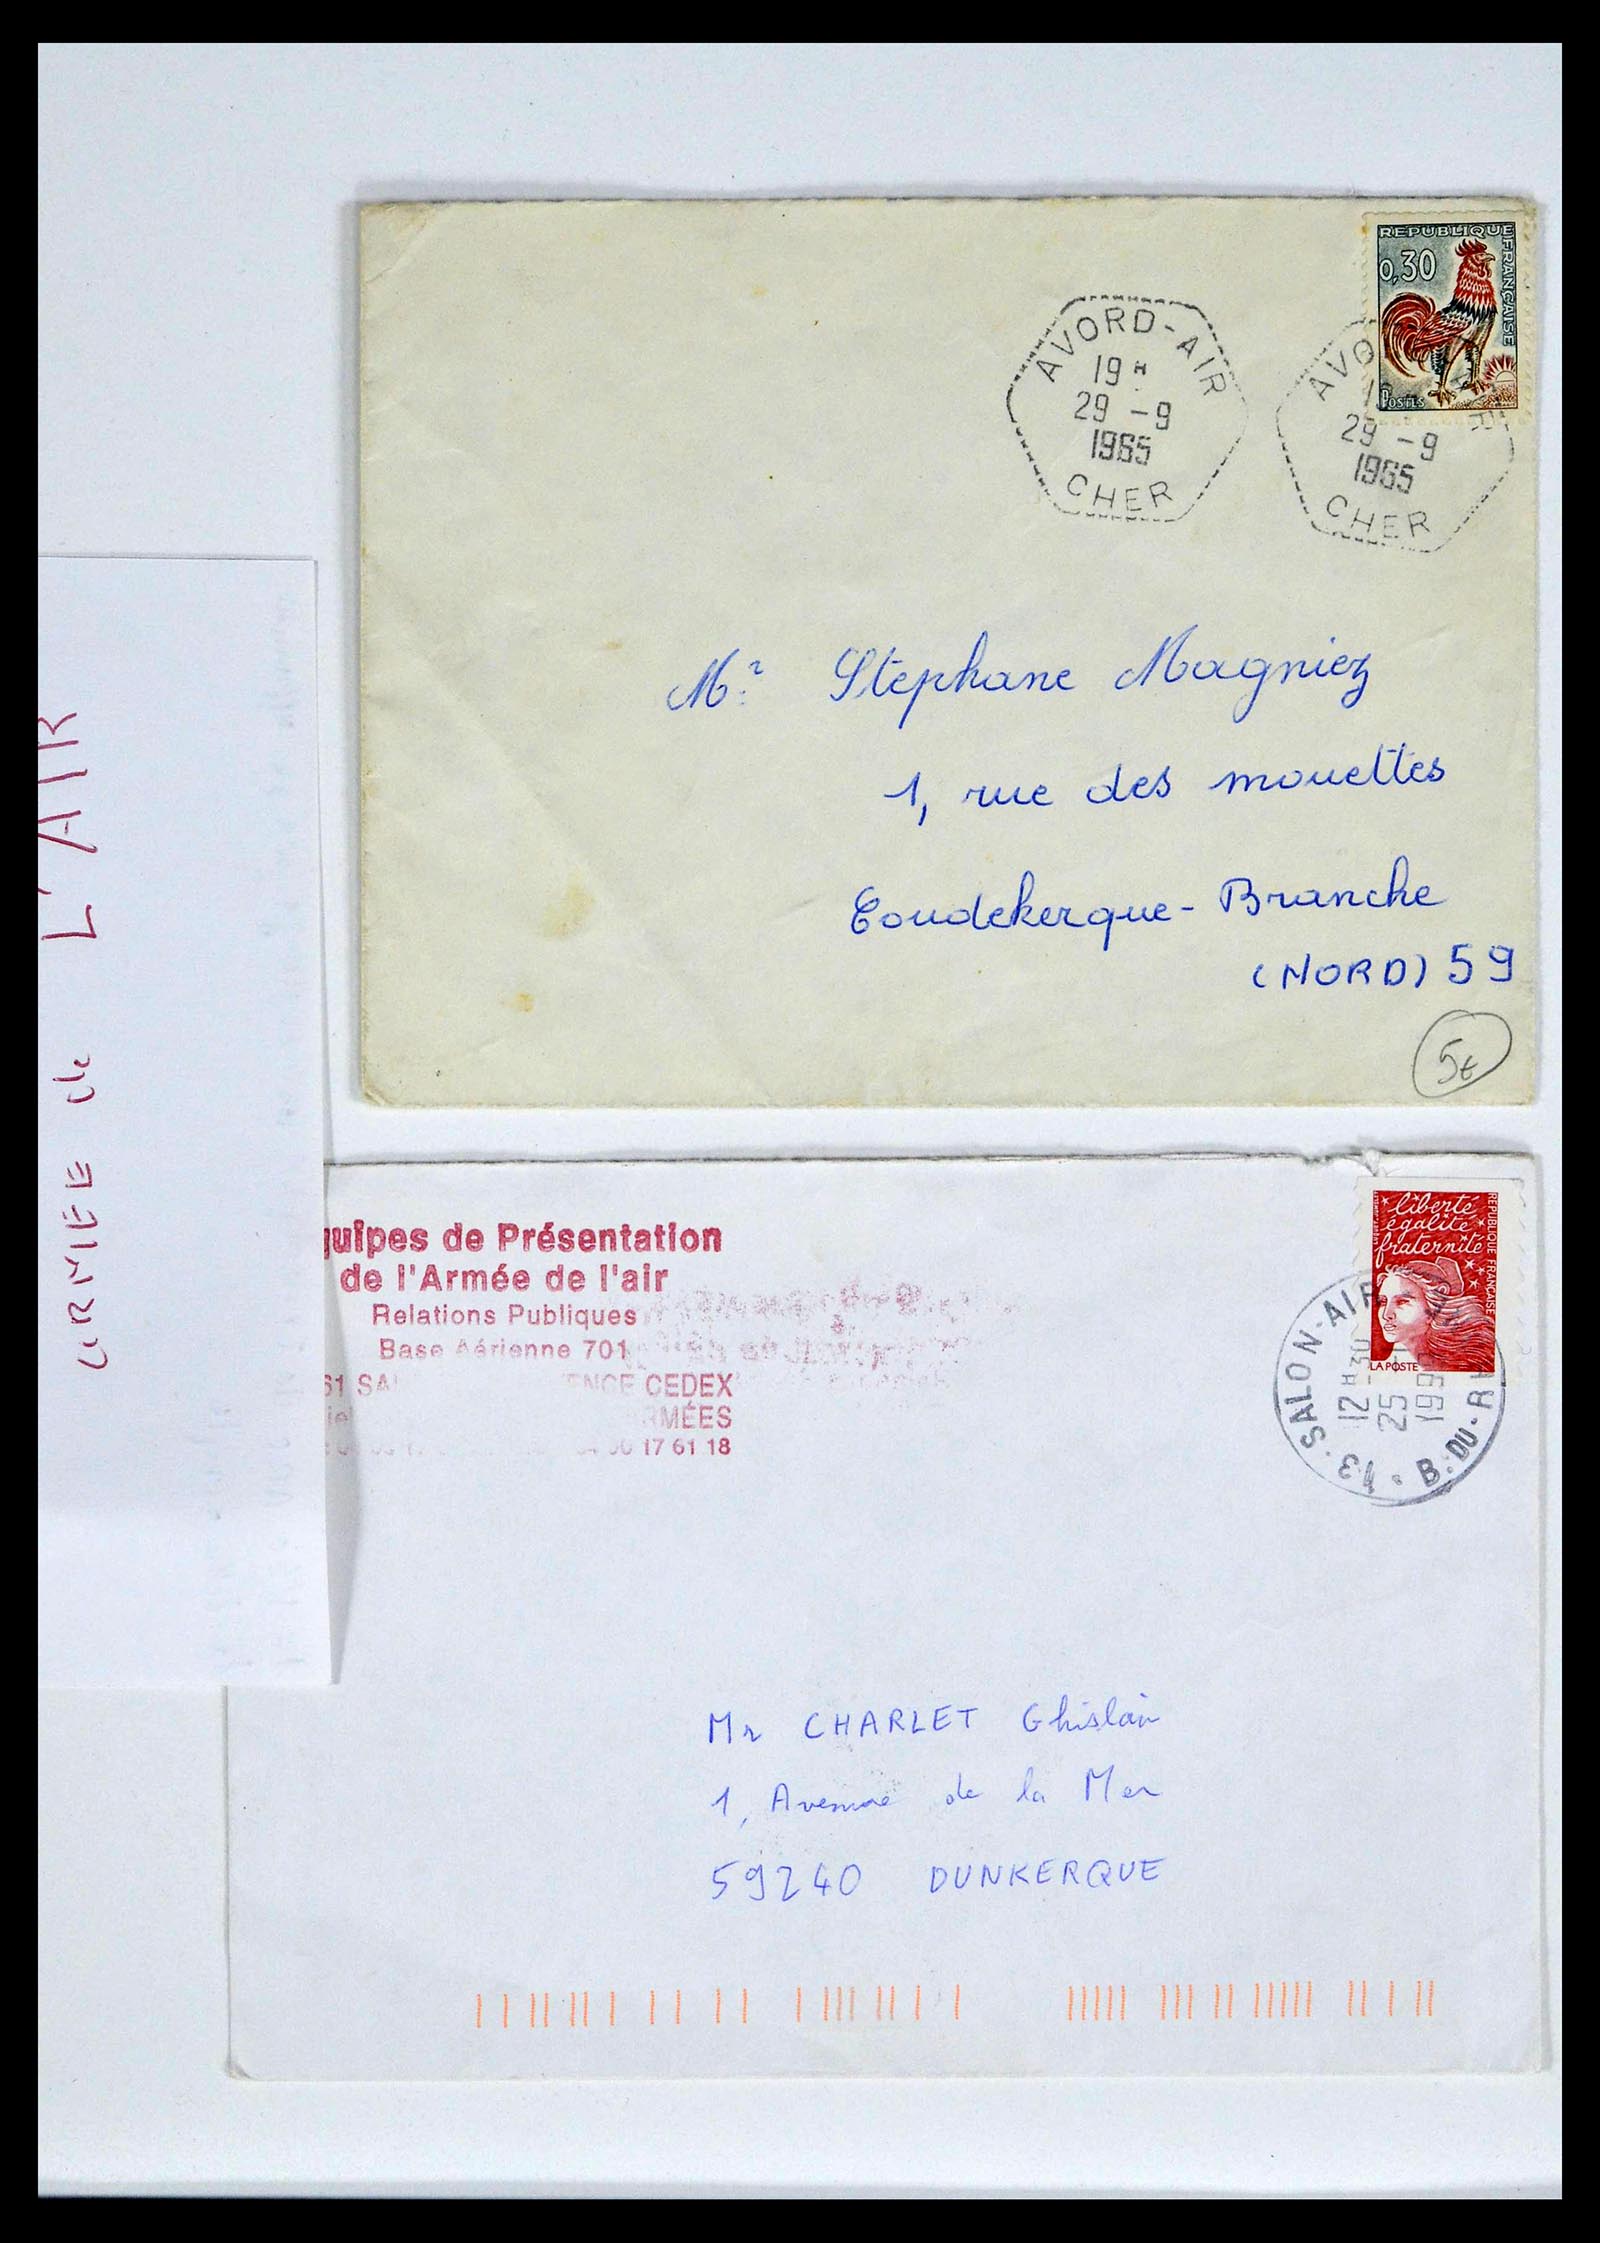 REPUBLIQUE FRANÇAISE
0,30
POSTES
AVORD-AIR
19 H
29 -9
1965
CHER
AVO
29 -9
1965
CHER
Mr. Stéphane Magniez
1, rue des mouettes
Coudekerque-Branche
(NORD) 59
5€
L'AIR
ARMEE de
quipes de Présentation
de l'Armée de l'air
Relations Publiques
Base Aérienne 701
61 SA ENCE CEDEX
RMÉES
17 61 18
liberté
égalité
fraternité
RÉPUBLIQUE FRANÇAISE
LA POSTE
13 · SALON-AIR
12 H 30
25
199
B. DU-R
Mr CHARLET Ghislain
1, Avenue de la Mer
59240 DUNKERQUE